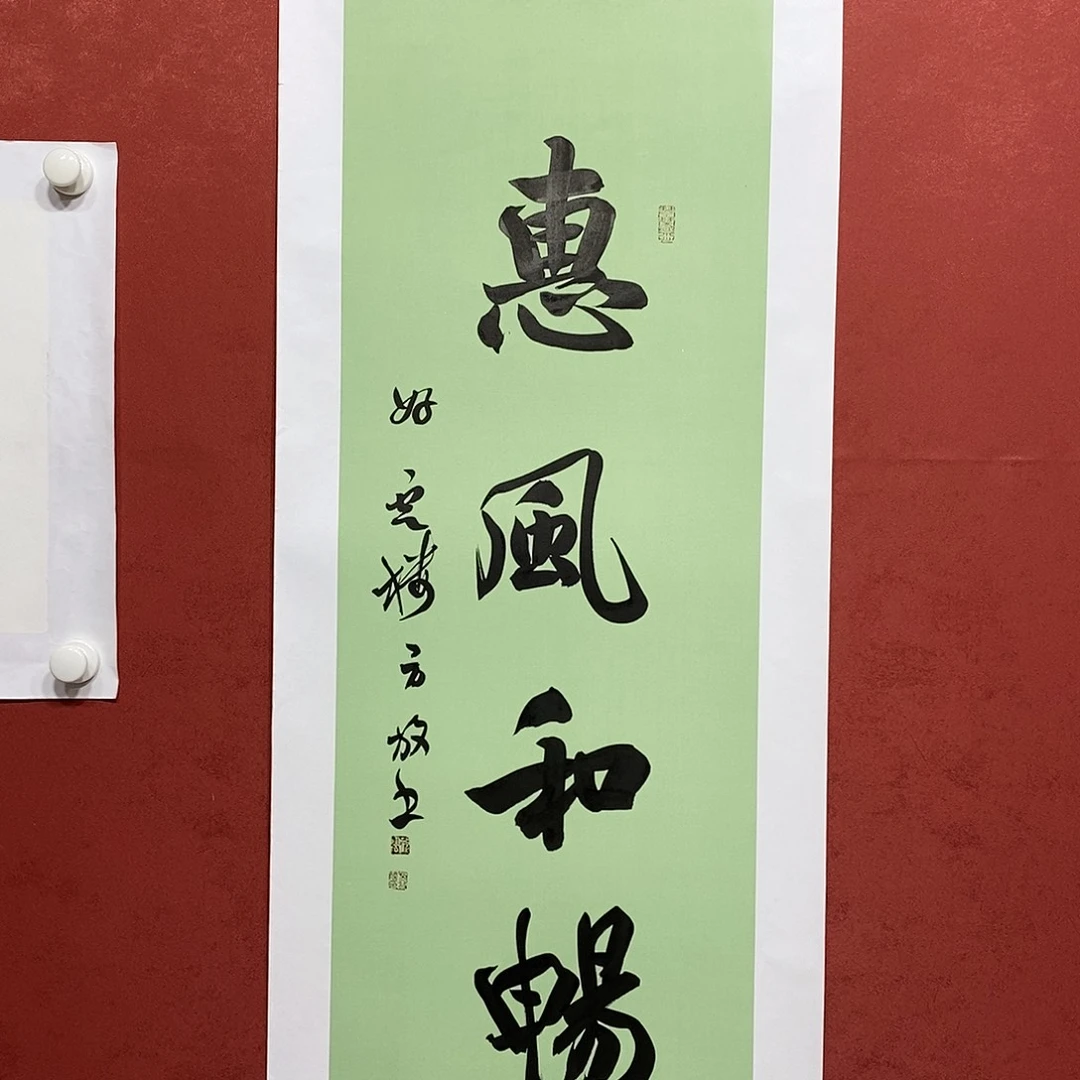 惠風和暢
好雲樓方放書